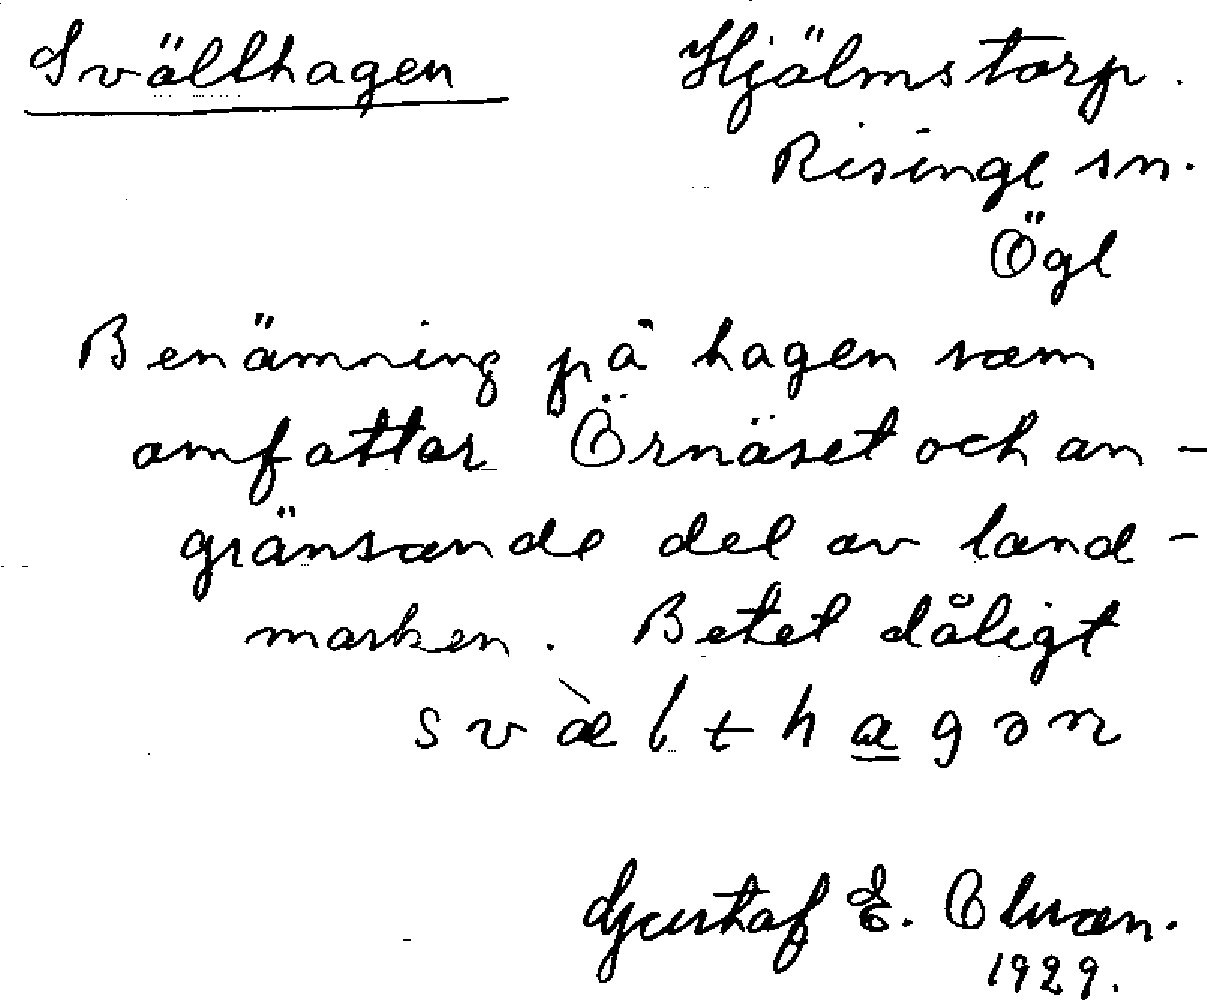 Svälthagen Hjälmstorp.
Risinge sn.
Ögl
Benämning på hagen som
omfattar Örnäset och an-
gränsande del av land-
marken. Betet dåligt
svæ̀lthagən
Gustaf E. Olsson.
1929.